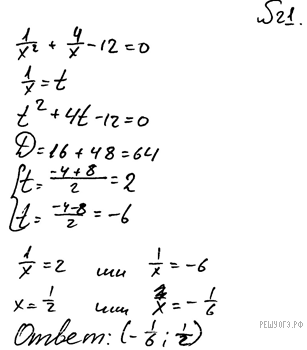 №21.
1/x² + 4/x - 12 = 0
1/x = t
t² + 4t - 12 = 0
D = 16 + 48 = 64
t = (-4+8)/2 = 2
t = (-4-8)/2 = -6
1/x = 2 или 1/x = -6
x = 1/2 или x = -1/6
Ответ: (-1/6; 1/2)
РЕШУОГЭ.РФ